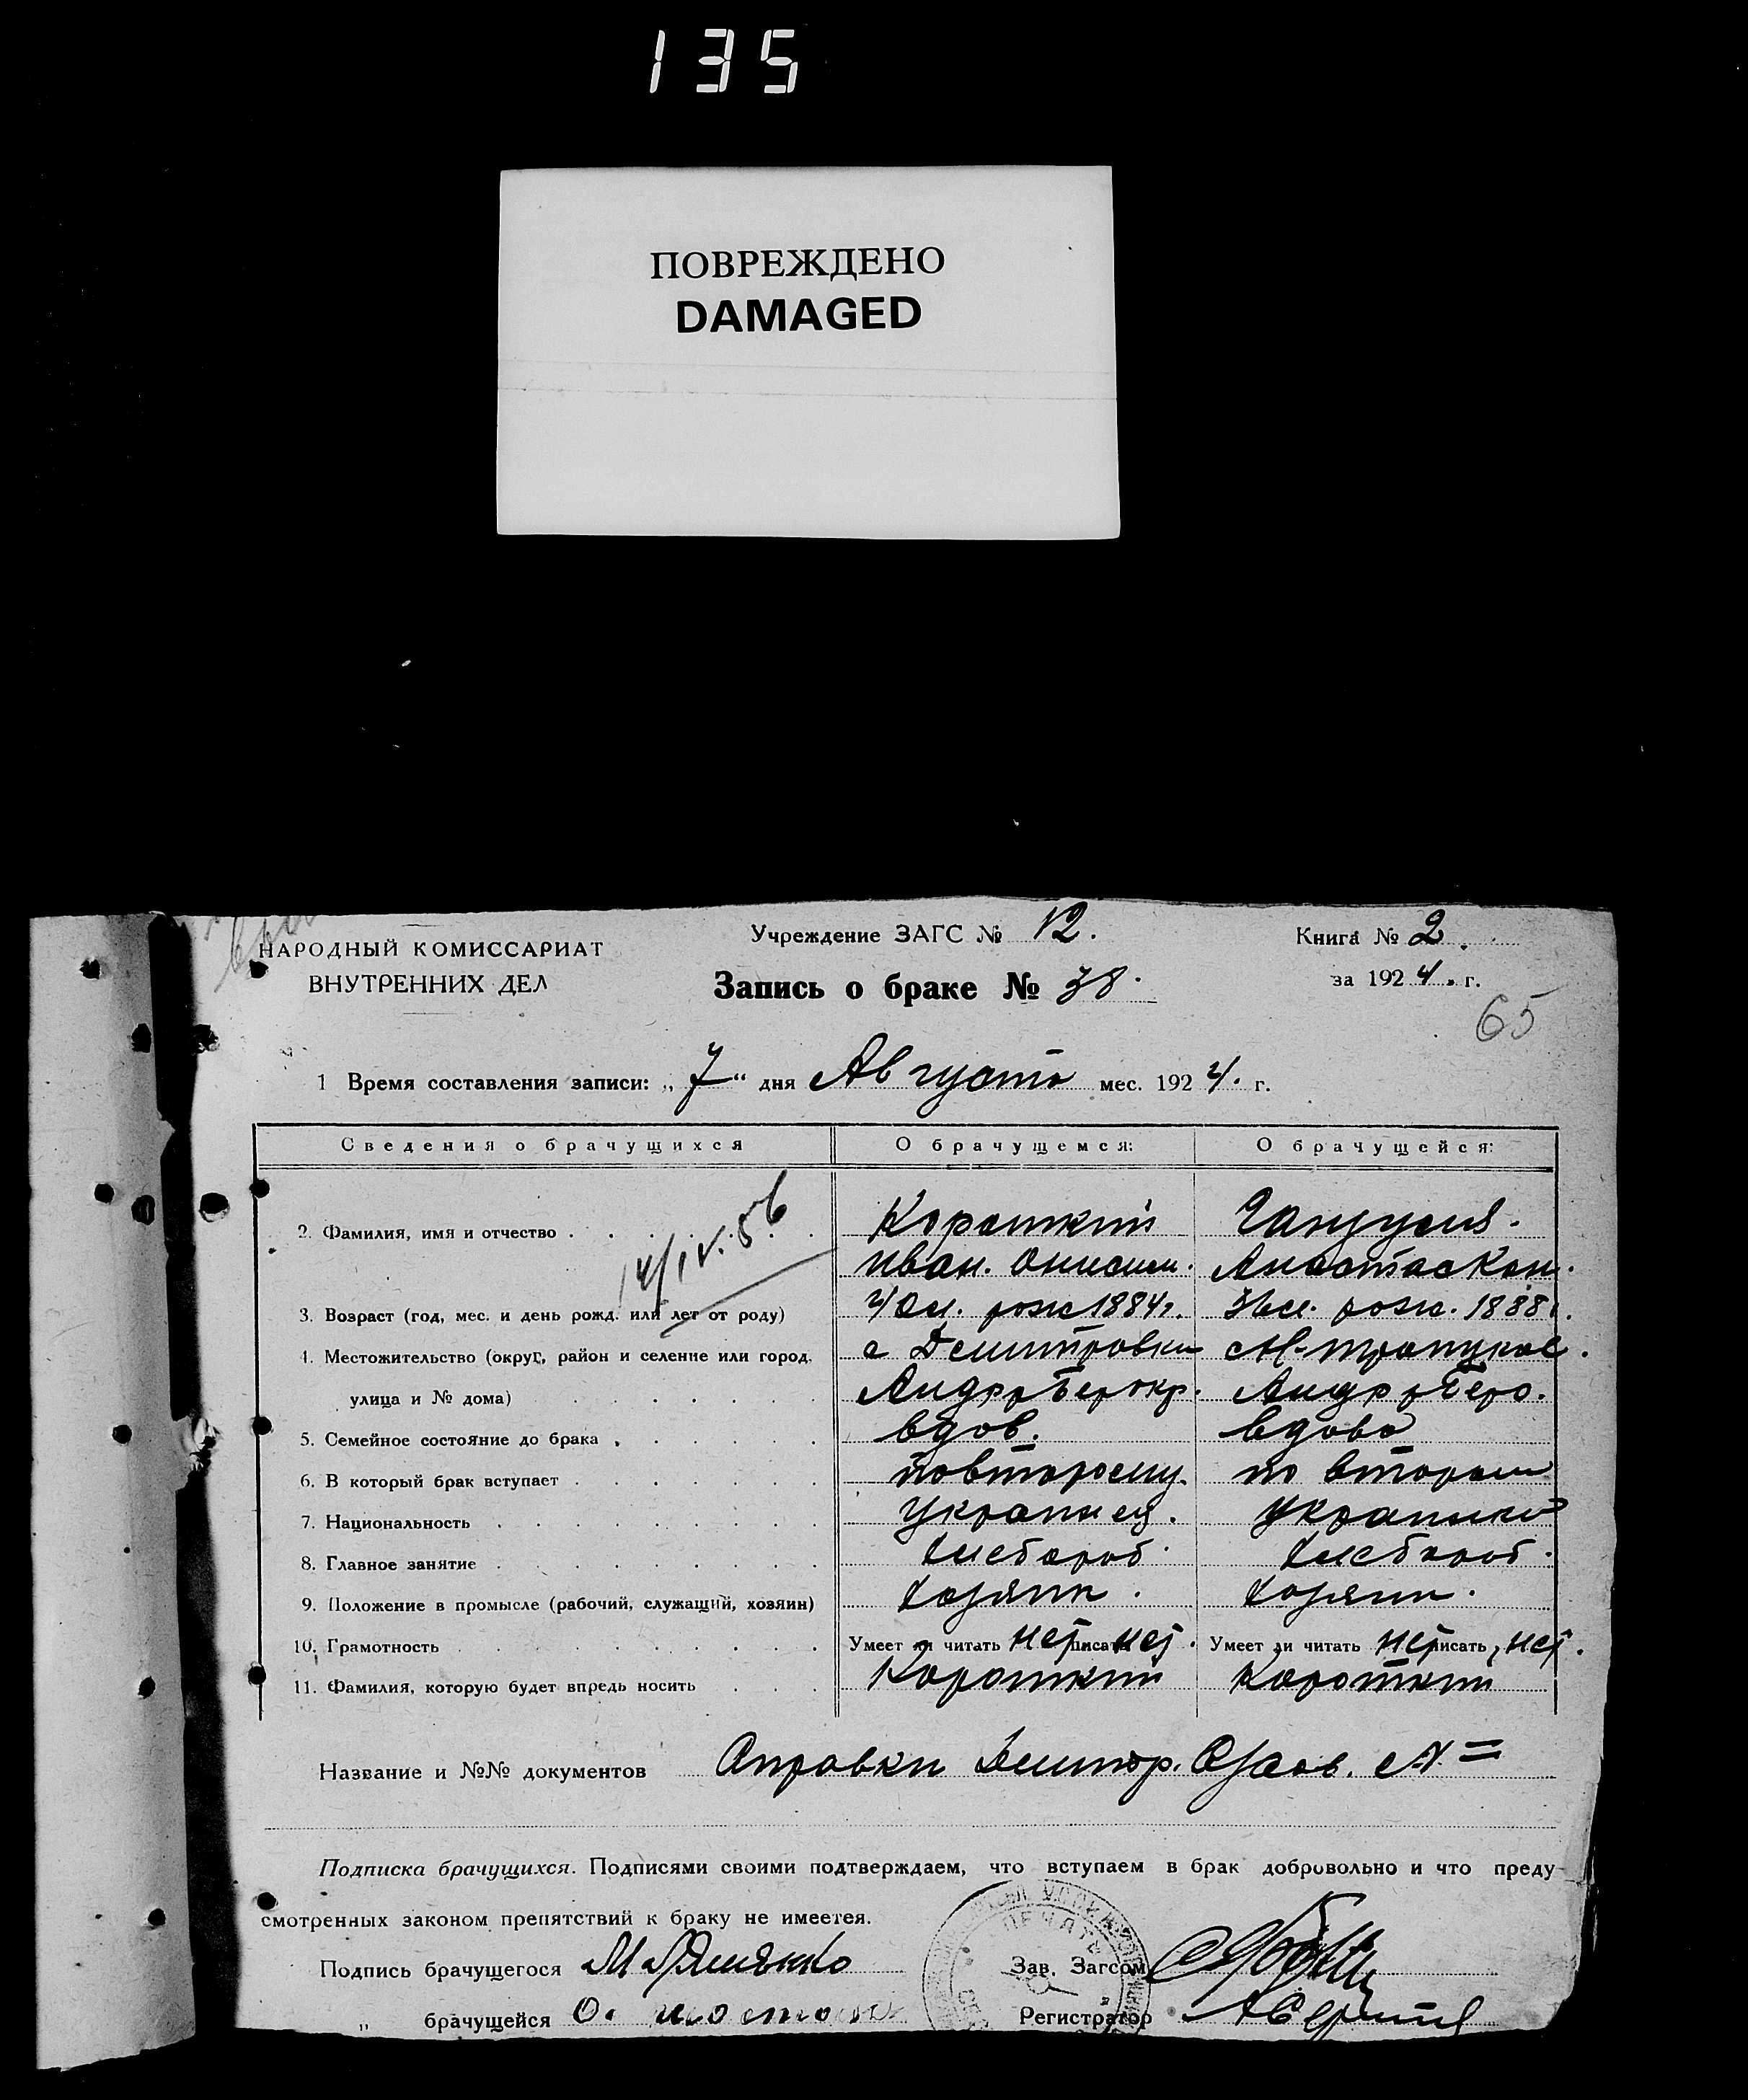 135
ПОВРЕЖДЕНО
DAMAGED
НАРОДНЫЙ КОМИССАРИАТ
ВНУТРЕННИХ ДЕЛ
Учреждение ЗАГС № 12.
Книга № 2.
Запись о браке № 38.
за 1924. г.
65
1 Время составления записи: „7“ дня Августа мес. 1924. г.
Сведения о брачущихся
О брачущемся:
О брачущейся:
14/IV.56
2. Фамилия, имя и отчество
Короткий
Иван. Онисим.
Анастас Кон.
3. Возраст (год, мес. и день рожд. или лет от роду)
40л. рож 1884г.
рож. 1888г.
4. Местожительство (округ, район и селение или город,
с Дмитровки
улица и № дома)
Андр р Бер окр.
Андр р Берд.
5. Семейное состояние до брака
вдов.
вдова
6. В который брак вступает
повторому.
по втором
7. Национальность
Украинец.
Украинка
8. Главное занятие
хлебороб.
хлебороб.
9. Положение в промысле (рабочий, служащий, хозяин)
хозяин.
хозяин.
10. Грамотность
Умеет ли читать нет писать нет.
Умеет ли читать нет писать, нет.
11. Фамилия, которую будет впредь носить
Короткий
Короткий
Название и №№ документов Справки Дмитр.
Подписка брачущихся. Подписями своими подтверждаем, что вступаем в брак добровольно и что преду-
смотренных законом препятствий к браку не имеется.
ПЕЧАТЬ
Подпись брачущегося
Зав. Загсом
„ брачущейся
Регистратор